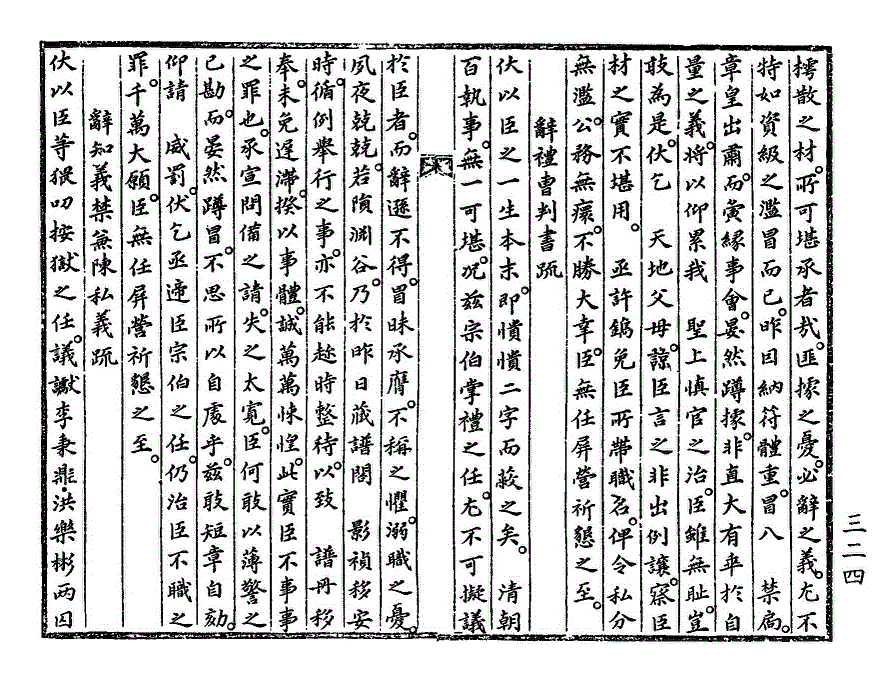 樗散之材。所可堪承者哉。匪據之憂。必辭之義。尤不
特如資級之濫冒而已。昨因納符體重。冒入 禁扃。
章皇出肅。而夤緣事會。晏然蹲據。非直大有乖於自
量之義。將以仰累我 聖上慎官之治。臣雖無耻。豈
敢為是。伏乞 天地父母。諒臣言之非出例讓。察臣
材之實不堪用。 亟許鐫免臣所帶職名。俾令私分
無濫。公務無瘝。不勝大幸。臣無任屏營祈懇之至。
辭禮曹判書疏
伏以臣之一生本末。即憒憒二字而蔽之矣。 清朝
百執事。無一可堪。况玆宗伯掌禮之任。尤不可擬議
於臣者。而辭遜不得。冒昧承膺。不稱之懼。溺職之憂。
夙夜兢兢。若隕淵谷。乃於昨日藏譜閣 影禎移安
時。循例舉行之事。亦不能趁時整待。以致 譜冊移
奉。未免遲滯。揆以事體。誠萬萬悚惶。此實臣不事事
之罪也。承宣問備之請。失之太寬。臣何敢以薄警之
已勘。而晏然蹲冒。不思所以自處乎。玆敢短章自劾。
仰請 威罰。伏乞亟遞臣宗伯之任。仍治臣不職之
罪。千萬大願。臣無任屏營祈懇之至。
辭知義禁兼陳私義疏
伏以臣等猥叨按獄之任。議讞李秉鼎,洪樂彬兩囚
三二四